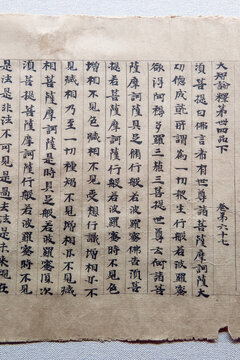 大智論釋第卌四品下
卷第六十七
須菩提白佛言希有世尊諸菩薩摩訶薩大
功德成就所謂為一切眾生行般若波羅蜜
欲得阿耨多羅三藐三菩提世尊云何諸菩
薩摩訶薩具足脩行般若波羅蜜佛告須菩
提若菩薩摩訶薩行般若波羅蜜時不見色
增相不見色減相不見受想行識增相亦不
見減相乃至一切種智不見增相亦不見減
相菩薩摩訶薩是時具足般若波羅蜜復次
須菩提菩薩摩訶薩行般若波羅蜜時不見
是法是非法不可見是過去法是未來現在